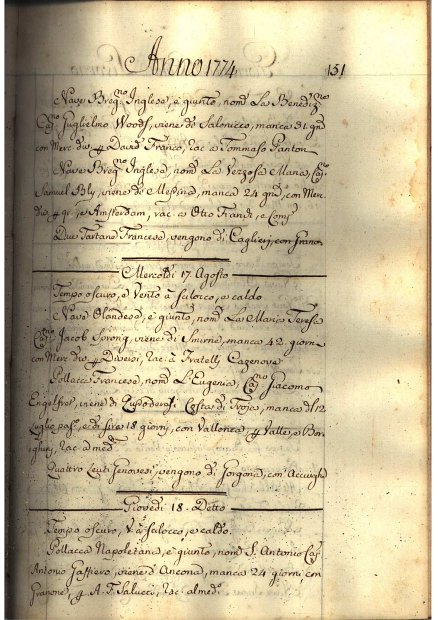 Anno 1774 151
Nave Breg.no Inglese, è giunto, nom.o La Benediz.no
Cap.no Guglielmo Woods, viene di Salonicco, manca 31 gni
con Merc. div. p David Franco, rac. a Tommaso Panton
Nave Breg.no Inglese, nom.o La Vezzosa Maria, Cap.
Samuel Bly, viene di Messina, manca 24 gni, con Mer.
div. p qi, e Amsterdam, rac. a Otto Frandi, e Comp.
Due Tartane Francese, vengono di Caglieri, con Grano
Mercoldi 17. Agosto
Tempo oscuro, e Vento à Scilocco, e caldo
Nave Olandese, è giunto, nom.o La Maria Teresa
Cap. Jacob Sprong, viene di Smirne, manca 42. giorni
con Merc. div. p Diversi, rac. à Fratelli Cazenove
Pollacca Francese, nom.o L'Eugenia, Cap.no Giacomo
viene di Costa di Troja, manca dl 12
Luglio pas.o, e di Sira 18 giorni, con Vallonea, p Valle, e Bor
ghini, rac. a med.mi
Quattro Leuti Genovesi, vengono di Gorgona, con Acciughe
Giovedi 18. Detto
Tempo oscuro, V.o à Scilocco, e caldo.
Pollacca Napoletana, è giunto, nom.o S. Antonio Cap.
Antonio Gaffiero, viene d'Ancona, manca 24 giorni con
Granone, p A. F. Salucci, rac. al med.o